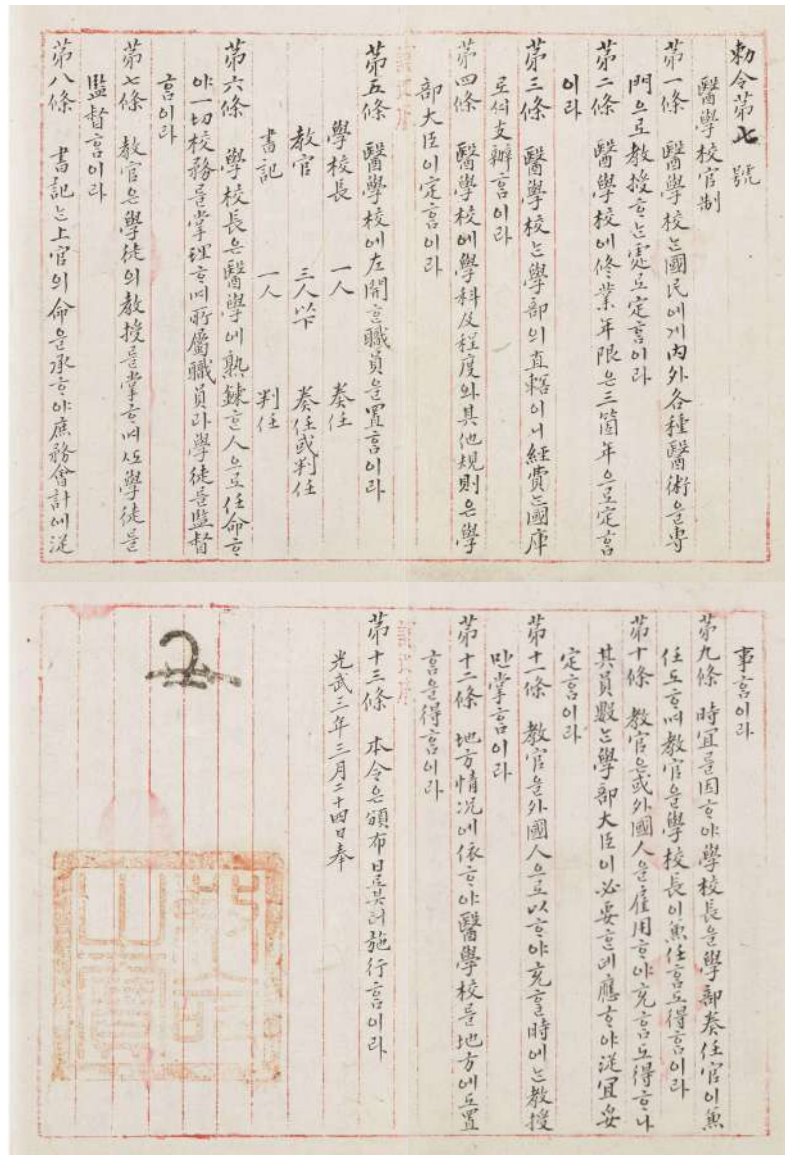 勅令第七號
醫學校官制
第一條 醫學校는國民에게內外各種醫術을專
門으로敎授ᄒᆞ는處로定홈이라
第二條 醫學校에修業年限은三箇年으로定홈
이라
第三條 醫學校는學部의直轄이니經費는國庫
로셔支辦홈이라
第四條 醫學校에學科及程度와其他規則은學
部大臣이定홈이라
第五條 醫學校에左開ᄒᆞᆫ職員을置홈이라
學校長 一人 奏任
敎官 三人以下 奏任或判任
書記 一人 判任
第六條 學校長은醫學에熟鍊ᄒᆞᆫ人으로任命ᄒᆞ
야一切校務를掌理ᄒᆞ며所屬職員과學徒를監督
홈이라
第七條 敎官은學徒의敎授를掌ᄒᆞ며ᄯᅩ學徒를
監督홈이라
第八條 書記는上官의命을承ᄒᆞ야庶務會計에從
事홈이라
第九條 時宜를因ᄒᆞ야學校長을學部奏任官이兼
任도ᄒᆞ며敎官을學校長이兼任홈도得홈이라
第十條 敎官은或外國人을雇用ᄒᆞ야充홈도得ᄒᆞ나
其員數는學部大臣이必要ᄒᆞᆫ데應ᄒᆞ야從宜妥
定홈이라
第十一條 敎官을外國人으로以ᄒᆞ야充ᄒᆞᆯ時에는敎授
만掌홈이라
第十二條 地方情況에依ᄒᆞ야醫學校를地方에도置
홈을得홈이라
第十三條 本令은頒布日로붓터施行홈이라
光武三年三月二十四日奉